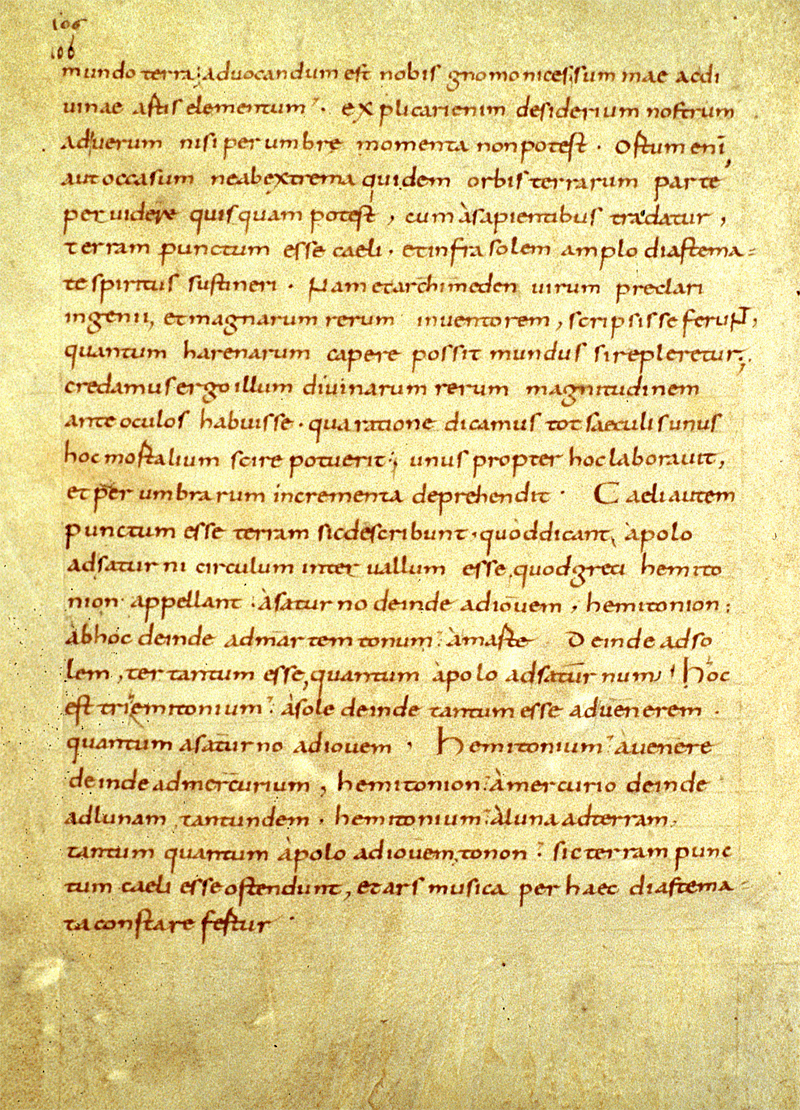 106
106
mundo terra; aduocandum est nobis gnomonices; summae ac di
uinae astis elementum. explicari enim desiderium nostrum
aduerum nisi per umbre momenta non potest. Ostum enī
aut occasum ne ab extrema quidem orbis terrarum parte
peruidere quisquam potest, cum àsapientibus tradatur,
terram punctum esse caeli. et infra solem amplo diastema-
te spiritus sustineri. Nam et archimeden uirum preclari
ingenii, et magnarum rerum inuentorem, scripsisse ferunt,
quantum harenarum capere possit mundus si repleretur;
credamus ergo illum diuinarum rerum magnitudinem
ante oculos habuisse. qua ratione dicamus tot saeculis unus
hoc mostalium scire potuerit; unus propter hoc laborauit,
et per umbrarum incrementa deprehendit. Caeli autem
punctum esse terram sic describunt. quòd dicant, àpolo
ad saturni circulum interuallum esse, quod greci hemito
nion appellant; àsaturno deinde ad iouem, hemitonion;
àb hoc deinde ad martem tonum; àmaste Deinde ad so
lem, ter tantum esse, quantum àpolo ad saturnum; hoc
est triemitonium; àsole deinde tantum esse aduenerem.
quantum asaturno ad iouem, Hemitonium; àuenere
deinde ad mercurium, hemitonion; àmercurio deinde
ad lunam tantundem. hemitonium; àluna ad terram,
tantum quantum àpolo ad iouem, tonon; sic terram punc
tum caeli esse ostendunt, et ars musica per haec diastema-
ta constare festur.